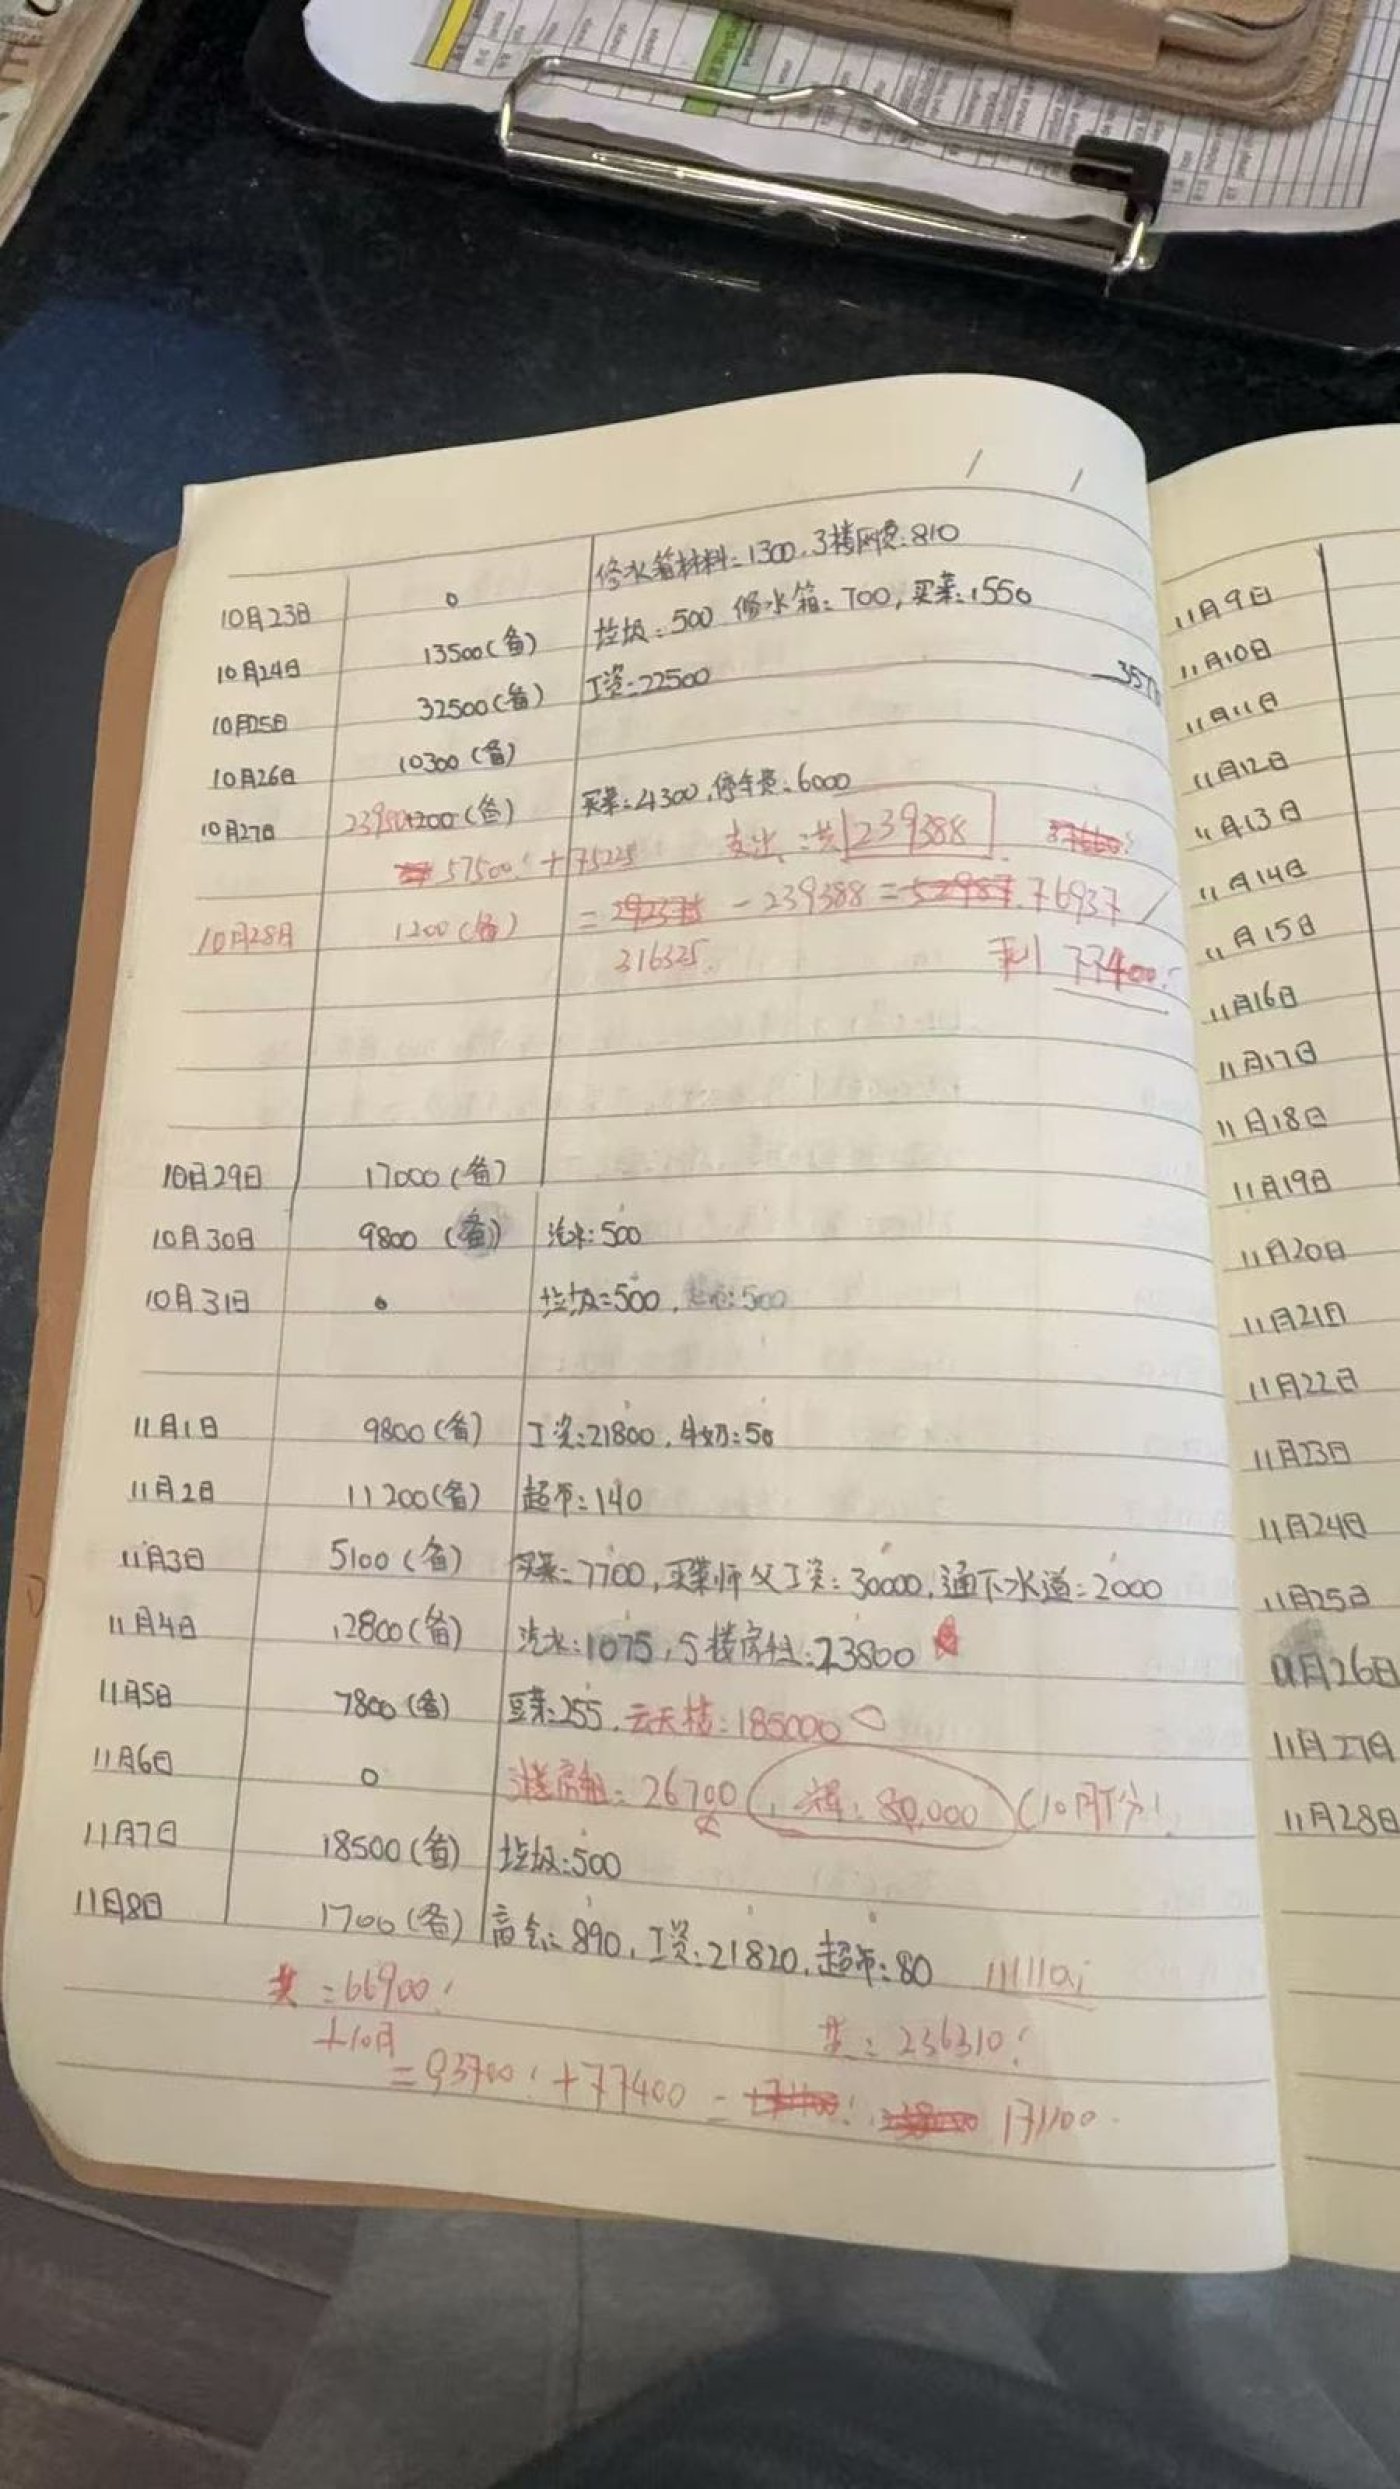 修水箱材料:1300,3楼网费:810
10月23日 0 垃圾:500 修水箱:700,买菜:1550
10月24日 13500(备) 工资:22500
10月25日 32500(备)
10月26日 10300(备) 买菜:4300,停车费:6000
10月27日 1200(备) 支出:共239388
57500!+175225
10月28日 1200(备) = - 239388 = 76937
316325 剩77400!
10月29日 17000(备)
10月30日 9800(备) 汽水:500
10月31日 0 垃圾:500,超市:500
11月1日 9800(备) 工资:21800,牛奶:50
11月2日 11200(备) 超市:140
11月3日 5100(备) 买菜:7700,买菜师父工资:30000,通下水道:2000
11月4日 12800(备) 汽水:1075,5楼房租:23800
11月5日 7800(备) 豆芽:255,云天楼:185000
11月6日 0 3楼房租:26700, 80,000
11月7日 18500(备) 垃圾:500
11月8日 1700(备) 890,工资:21820,超市:80
共:66900!
共:236310!
+10月
=93700!+77400= 171100
11月9日
11月10日
11月11日
11月12日
11月13日
11月14日
11月15日
11月16日
11月17日
11月18日
11月19日
11月20日
11月21日
11月22日
11月23日
11月24日
11月25日
11月26日
11月27日
11月28日